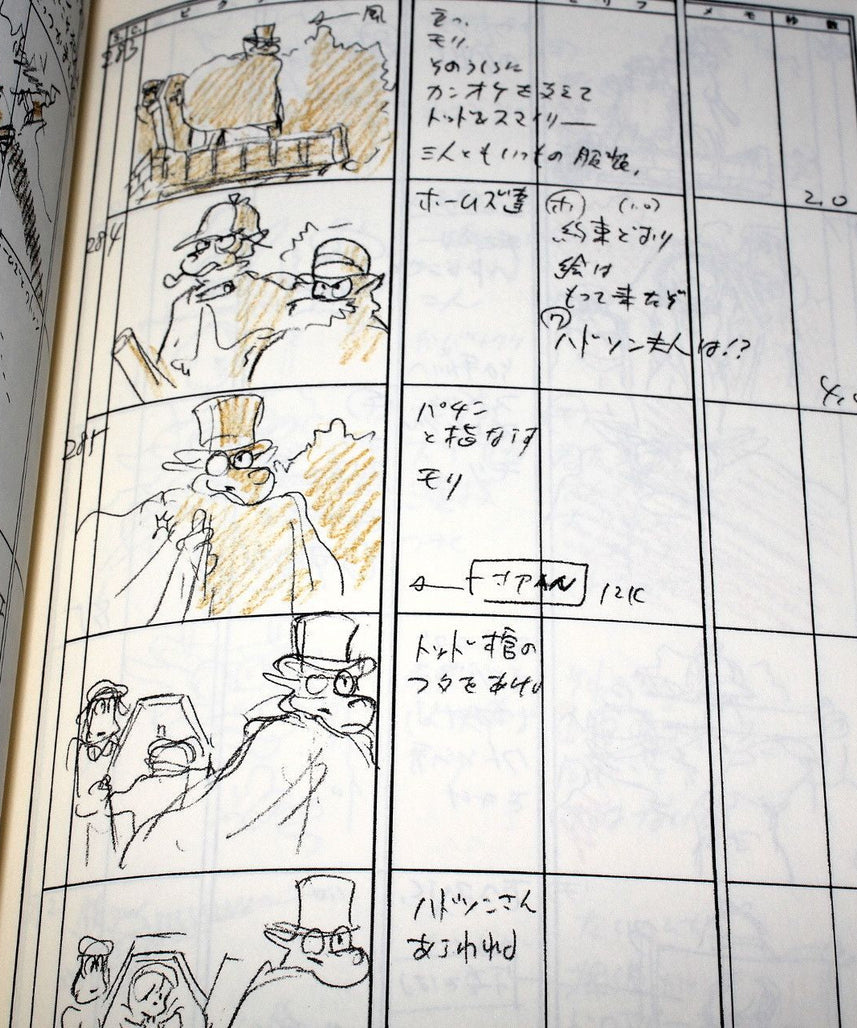 ピクチ
セリフ
メモ
秒数
283
←風
モリ
そのうしろに
カンオケを支えて
トッド&スマイリー
三人ともいつもの服装、
2.0
284
ホームズ達
ホ (1.0)
約束どおり
絵は
もって来たぞ
ワ
ハドソン夫人は!?
285
パチン
と指ならす
モリ
12K
トッド棺の
フタをあける
ハドソンさん
あらわれる